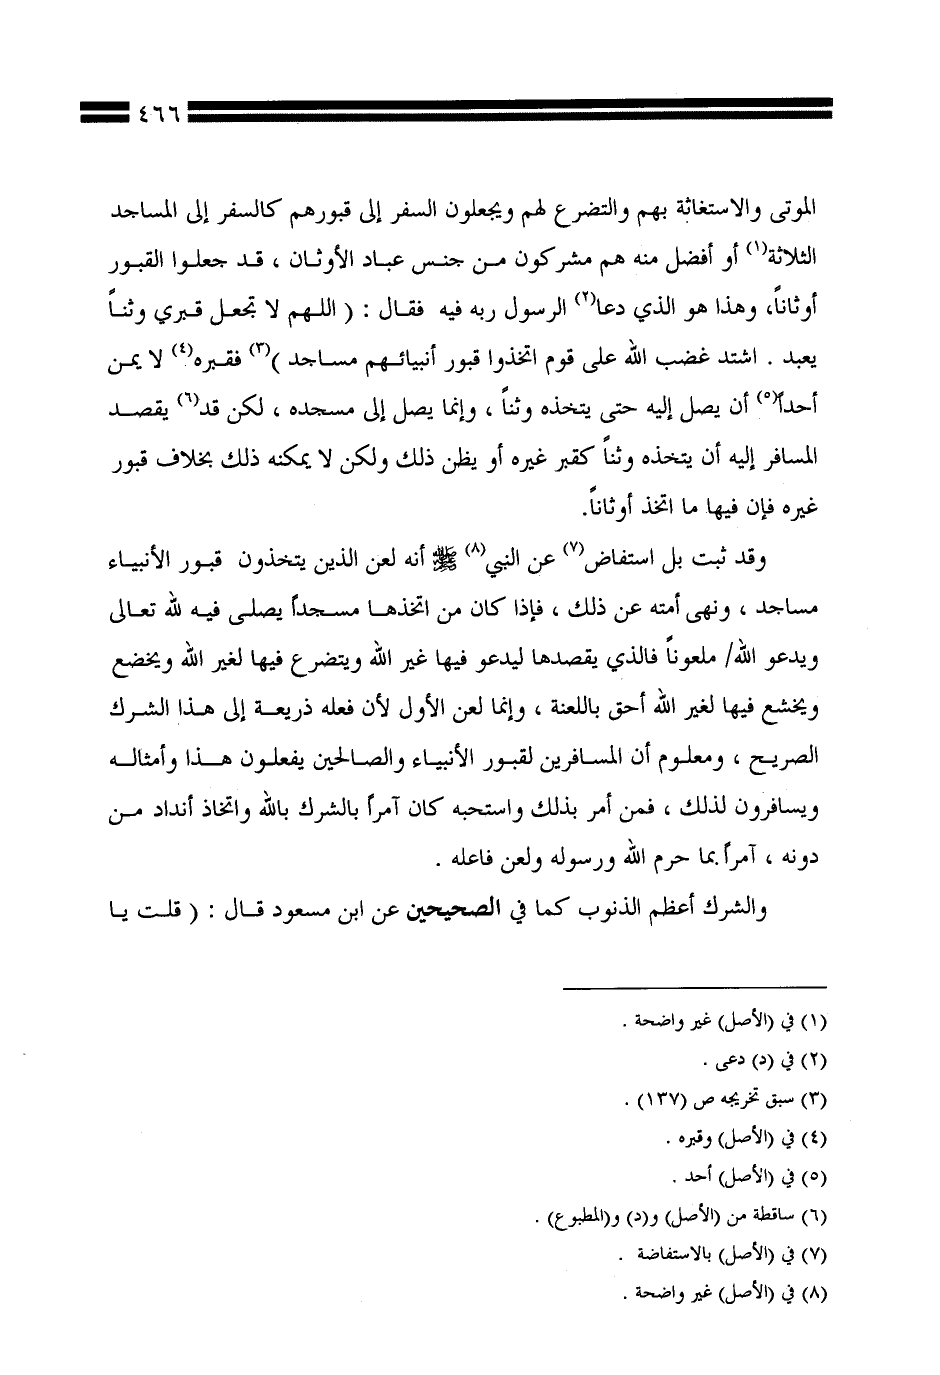 ٤٦٦
الموتى والاستغاثة بهم والتضرع لهم ويجعلون السفر إلى قبورهم كالسفر إلى المساجد
الثلاثة(١) أو أفضل منه هم مشركون من جنس عباد الأوثان ، قد جعلوا القبور
أوثاناً، وهذا هو الذي دعا(٢) الرسول ربه فيه فقال : ( اللهم لا تجعل قبري وثناً
يعبد . اشتد غضب الله على قوم اتخذوا قبور أنبيائهم مساجد )(٣) فقبره(٤) لا يمن
أحداً(٥) أن يصل إليه حتى يتخذه وثناً ، وإنما يصل إلى مسجده ، لكن قد(٦) يقصد
المسافر إليه أن يتخذه وثناً كقبر غيره أو يظن ذلك ولكن لا يمكنه ذلك بخلاف قبور
غيره فإن فيها ما اتخذ أوثاناً.
وقد ثبت بل استفاض(٧) عن النبي(٨) ﷺ أنه لعن الذين يتخذون قبور الأنبياء
مساجد ، ونهى أمته عن ذلك ، فإذا كان من اتخذها مسجداً يصلى فيه لله تعالى
ويدعو الله/ ملعوناً فالذي يقصدها ليدعو فيها غير الله ويتضرع فيها لغير الله ويخضع
ويخشع فيها لغير الله أحق باللعنة ، وإنما لعن الأول لأن فعله ذريعة إلى هذا الشرك
الصريح ، ومعلوم أن المسافرين لقبور الأنبياء والصالحين يفعلون هذا وأمثاله
ويسافرون لذلك ، فمن أمر بذلك واستحبه كان آمراً بالشرك بالله واتخاذ أنداد من
دونه ، آمراً بما حرم الله ورسوله ولعن فاعله .
والشرك أعظم الذنوب كما في الصحيحين عن ابن مسعود قال : ( قلت يا
(١) في (الأصل) غير واضحة .
(٢) في (د) دعى .
(٣) سبق تخريجه ص (١٣٧) .
(٤) في (الأصل) وقبره .
(٥) في (الأصل) أحد .
(٦) ساقطة من (الأصل) و(د) و(المطبوع) .
(٧) في (الأصل) بالاستفاضة .
(٨) في (الأصل) غير واضحة .